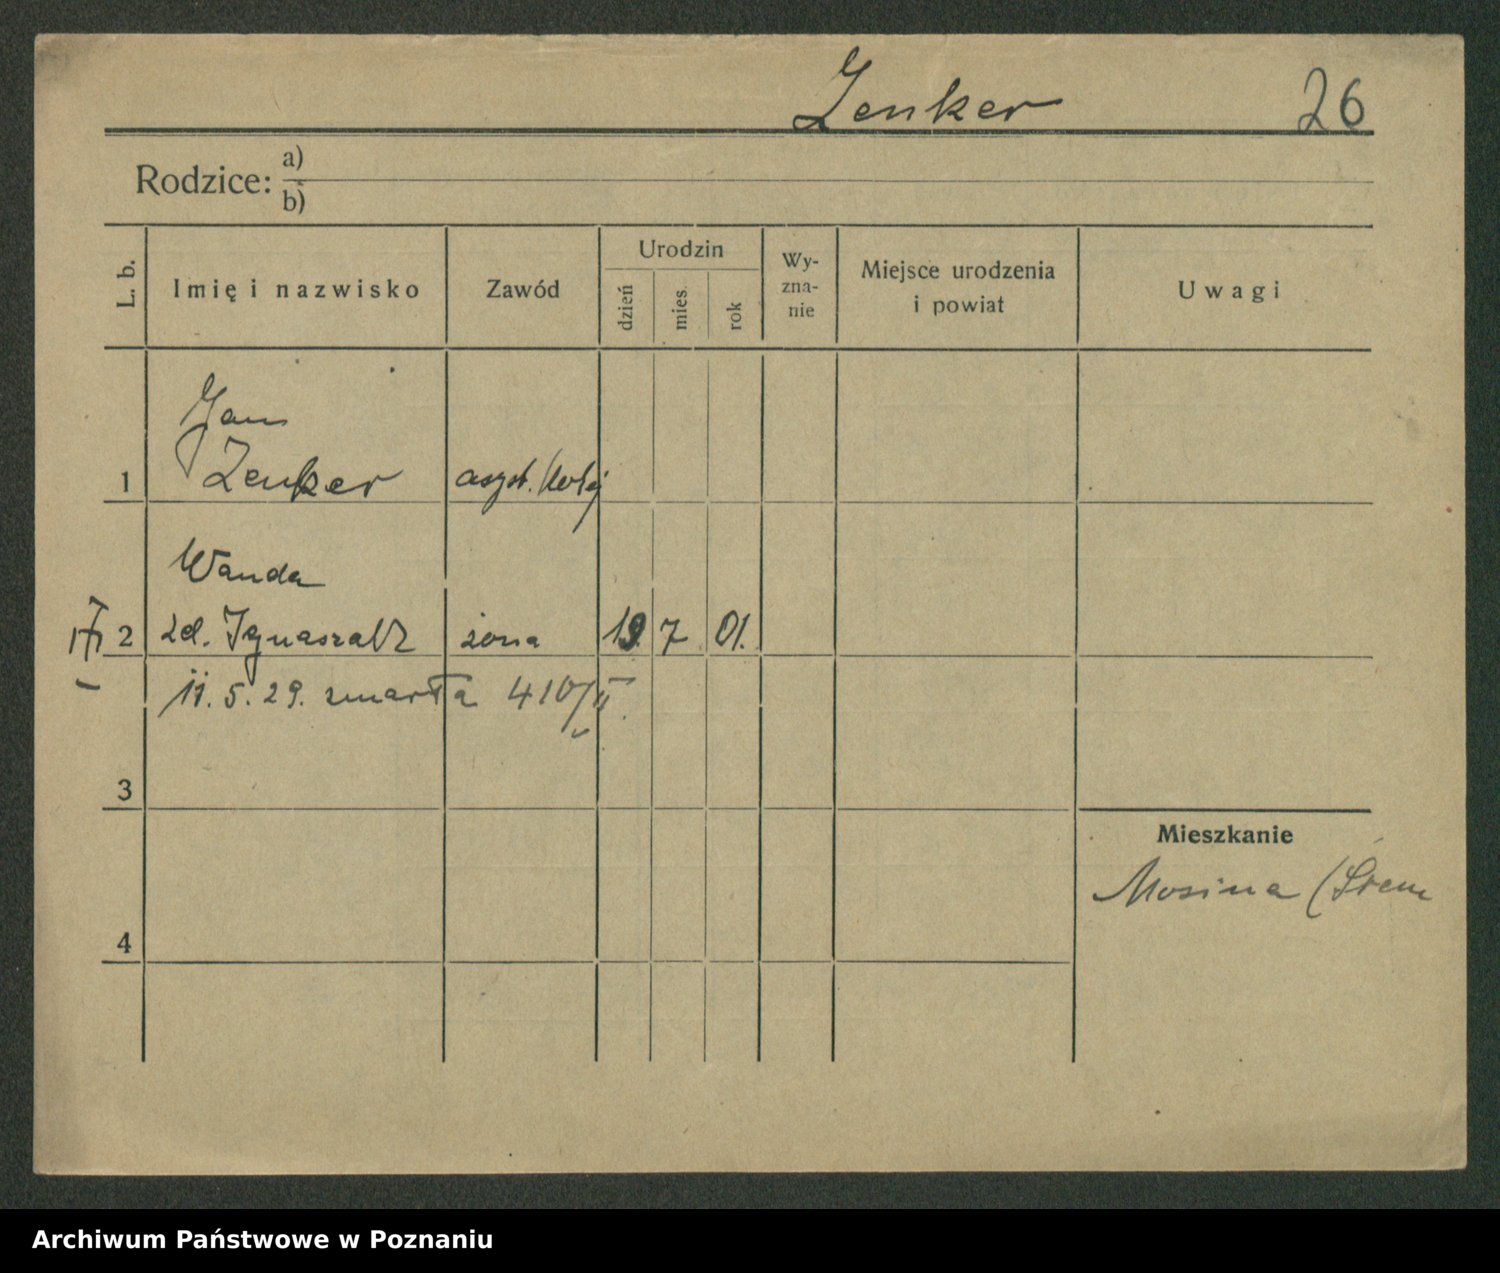 Zenker 26
Rodzice: a)
b)
L. b. Imię i nazwisko Zawód Urodzin dzień mies. rok Wy-zna-nie Miejsce urodzenia i powiat Uwagi
Jan
1 Zenker asyst. kolej
Wanda
2 zd. Ignaszak żona 19. 7 01.
11. 5. 29. zmarła 410/II
3
Mieszkanie
Mosina (Śrem
4
Archiwum Państwowe w Poznaniu